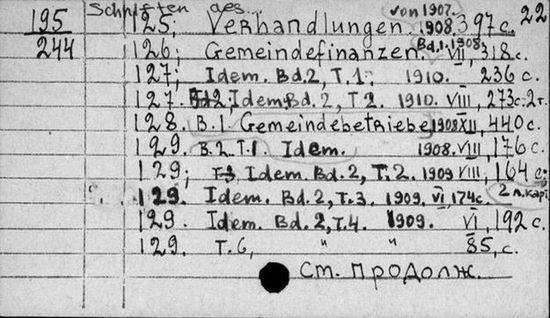 Schriften des... von 1907. 22
195 125; Verhandlungen. 1908. 397 с.
244 126; Gemeindefinanzen. Bd.1.1908. VI, 318 с.
127; Idem. Bd.2, T.1; 1910. 236 с.
127. Bd.2, Idem. Bd.2, T 2. 1910. VIII, 273 с. 2 т.
128. B.1. Gemeindebetriebe, 1908 XII, 440 с.
129. B.2.T.1 Idem. 1908. VIII, 176 с.
129; Idem. Bd.2, T. 2. 1909 VIII, 164 с;
129. Idem. Bd.2, T.3. 1909. VI, 174 с. 2 л. карт
129. Idem. Bd.2, T.4. 1909. VI, 192 с.
129. T.6, " " 85, с.
См. продолж.